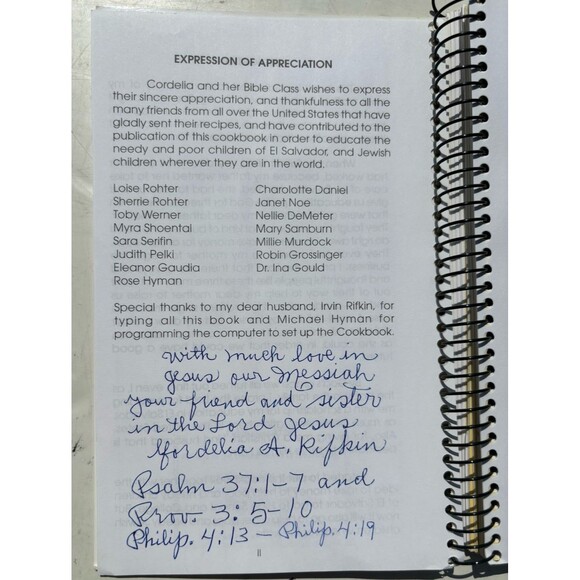 EXPRESSION OF APPRECIATION
Cordelia and her Bible Class wishes to express
their sincere appreciation, and thankfulness to all the
many friends from all over the United States that have
gladly sent their recipes, and have contributed to the
publication of this cookbook in order to educate the
needy and poor children of El Salvador, and Jewish
children wherever they are in the world.
Loise Rohter
Sherrie Rohter
Toby Werner
Myra Shoental
Sara Serifin
Judith Pelki
Eleanor Gaudia
Rose Hyman
Charolotte Daniel
Janet Noe
Nellie DeMeter
Mary Samburn
Millie Murdock
Robin Grossinger
Dr. Ina Gould
Special thanks to my dear husband, Irvin Rifkin, for
typing all this book and Michael Hyman for
programming the computer to set up the Cookbook.
With much love in
Jesus our Messiah
your friend and sister
in the Lord Jesus
Cordelia A. Rifkin
Psalm 37:1-7 and
Prov. 3:5-10
Philip. 4:13 - Philip. 4:19
II